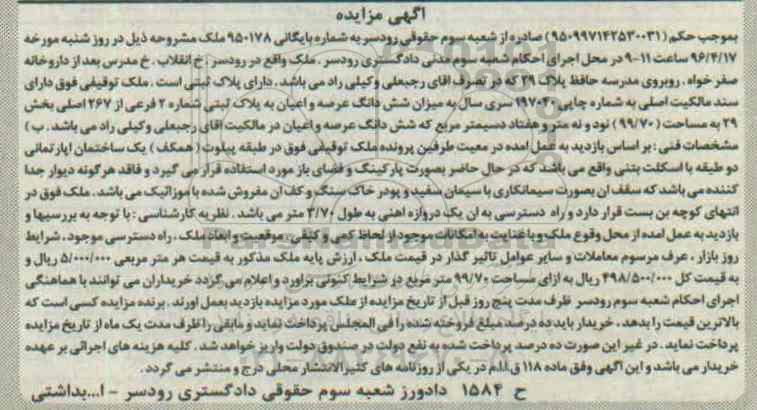 آگهی مزایده
بموجب حکم (۹۵۰۹۹۷۱۴۲۵۳۰۰۳۱) صادره از شعبه سوم حقوقی رودسر به شماره بایگانی ۹۵۰۱۷۸ ملک مشروحه ذیل در روز شنبه مورخه
۹۶/۴/۱۷ ساعت ۱۱-۹ در محل اجرای احکام شعبه سوم مدنی دادگستری رودسر . ملک واقع در رودسر . خ انقلاب . خ مدرس بعد از داروخانه
صفر خواه . روبروی مدرسه حافظ پلاک ۳۹ که در تصرف اقای رجبعلی وکیلی راد می باشد . دارای پلاک ثبتی است . ملک توقیفی فوق دارای
سند مالکیت اصلی به شماره چاپی ۱۹۷۰۴۰ سری سال به میزان شش دانگ عرصه و اعیان به پلاک ثبتی شماره ۲ فرعی از ۲۶۷ اصلی بخش
۲۹ به مساحت (۹۹/۷۰) نود و نه متر و هفتاد دسیمتر مربع که شش دانگ عرصه و اعیان در مالکیت اقای رجبعلی وکیلی راد می باشد . ب )
مشخصات فنی : بر اساس بازدید به عمل امده در معیت طرفین پرونده ملک توقیفی فوق در طبقه پیلوت ( همکف ) یک ساختمان اپارتمانی
دو طبقه با اسکلت بتنی واقع می باشد که در حال حاضر بصورت پارکینگ و فضای باز مورد استفاده قرار می گیرد و فاقد هرگونه دیوار جدا
کننده می باشد که سقف ان بصورت سیمانکاری با سیمان سفید و پودر خاک سنگ و کف ان مفروش شده با موزائیک می باشد . ملک فوق در
انتهای کوچه بن بست قرار دارد و راه دسترسی به ان یک دروازه اهنی به طول ۳/۷۰ متر می باشد . نظریه کارشناسی : با توجه به بررسیها و
بازدید به عمل امده از محل وقوع ملک و با عنایت به امکانات موجود از لحاظ کمی و کیفی . موقعیت و ابعاد ملک . راه دسترسی موجود . شرایط
روز بازار . عرف مرسوم معاملات و سایر عوامل تاثیر گذار در قیمت ملک . ارزش پایه ملک مذکور به قیمت هر متر مربعی ۵/۰۰۰/۰۰۰ ریال و
به قیمت کل ۴۹۸/۵۰۰/۰۰۰ ریال به ازای مساحت ۹۹/۷۰ متر مربع در شرایط کنونی براورد و اعلام می گردد خریداران می توانند با هماهنگی
اجرای احکام شعبه سوم رودسر ظرف مدت پنج روز قبل از تاریخ مزایده از ملک مورد مزایده بازدید بعمل اورند . برنده مزایده کسی است که
بالاترین قیمت را بدهد . خریدار باید ده درصد مبلغ فروخته شده را فی المجلس پرداخت نماید و مابقی را ظرف مدت یک ماه از تاریخ مزایده
پرداخت نماید . در غیر این صورت ده درصد پرداخت شده به نفع دولت در صندوق دولت واریز خواهد شد . کلیه هزینه های اجرائی بر عهده
خریدار می باشد و این اگهی وفق ماده ۱۱۸ ق.ا.ا.م در یکی از روزنامه های کثیرالانتشار محلی درج و منتشر می گردد .
ح ۱۵۸۴ دادورز شعبه سوم حقوقی دادگستری رودسر - ا...بداشتی